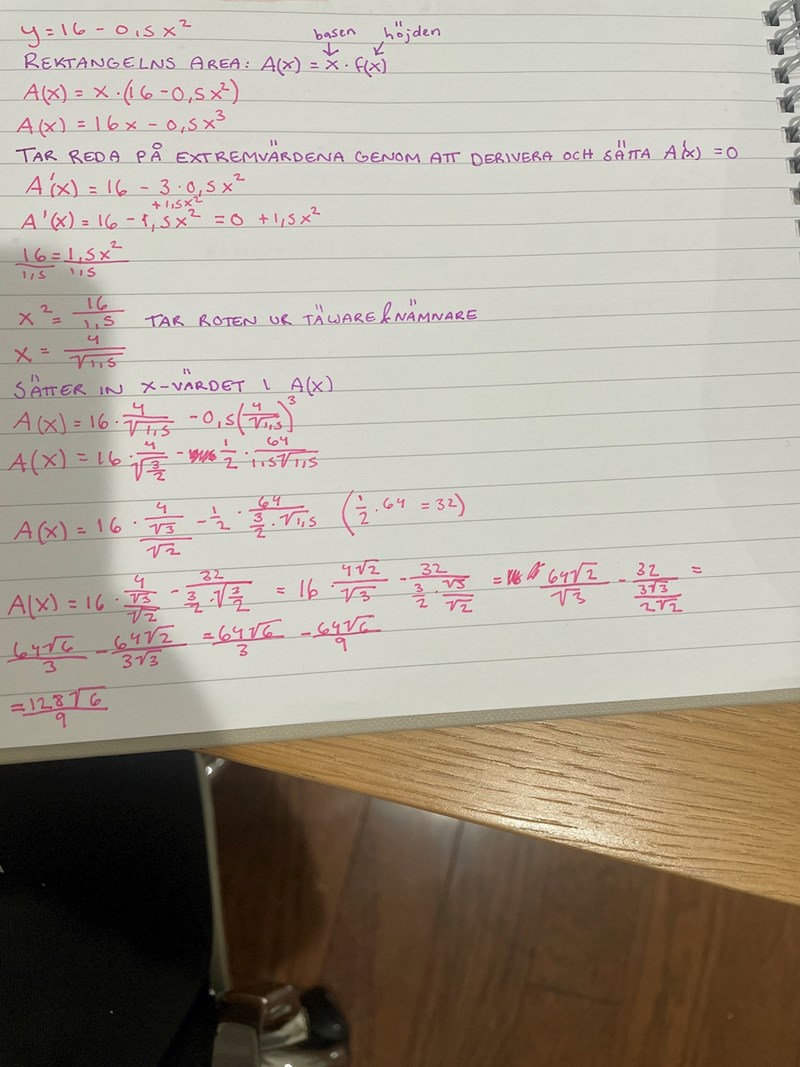 y = 16 - 0,5x²
basen höjden
REKTANGELNS AREA: A(x) = x · f(x)
A(x) = x · (16 - 0,5x²)
A(x) = 16x - 0,5x³
TAR REDA PÅ EXTREMVÄRDENA GENOM ATT DERIVERA OCH SÄTTA A'(x) = 0
A'(x) = 16 - 3 · 0,5x²
+1,5x²
A'(x) = 16 - 1,5x² = 0 + 1,5x²
16/1,5 = 1,5x²/1,5
x² = 16/1,5 TAR ROTEN UR TÄLJARE & NÄMNARE
x = 4/√1,5
SÄTTER IN X-VÄRDET I A(x)
A(x) = 16 · 4/√1,5 - 0,5(4/√1,5)³
A(x) = 16 · 4/√(3/2) - 1/2 · 64/(1,5√1,5)
A(x) = 16 · 4/(√3/√2) - 1/2 · 64/(3/2 · √1,5) (1/2 · 64 = 32)
A(x) = 16 · 4/(√3/√2) - 32/(3/2 · √(3/2)) = 16 4√2/√3 - 32/(3/2 · √3/√2) = 64√2/√3 - 32/(3√3/2√2) =
64√6/3 - 64√2/3√3 = 64√6/3 - 64√6/9
= 128√6/9